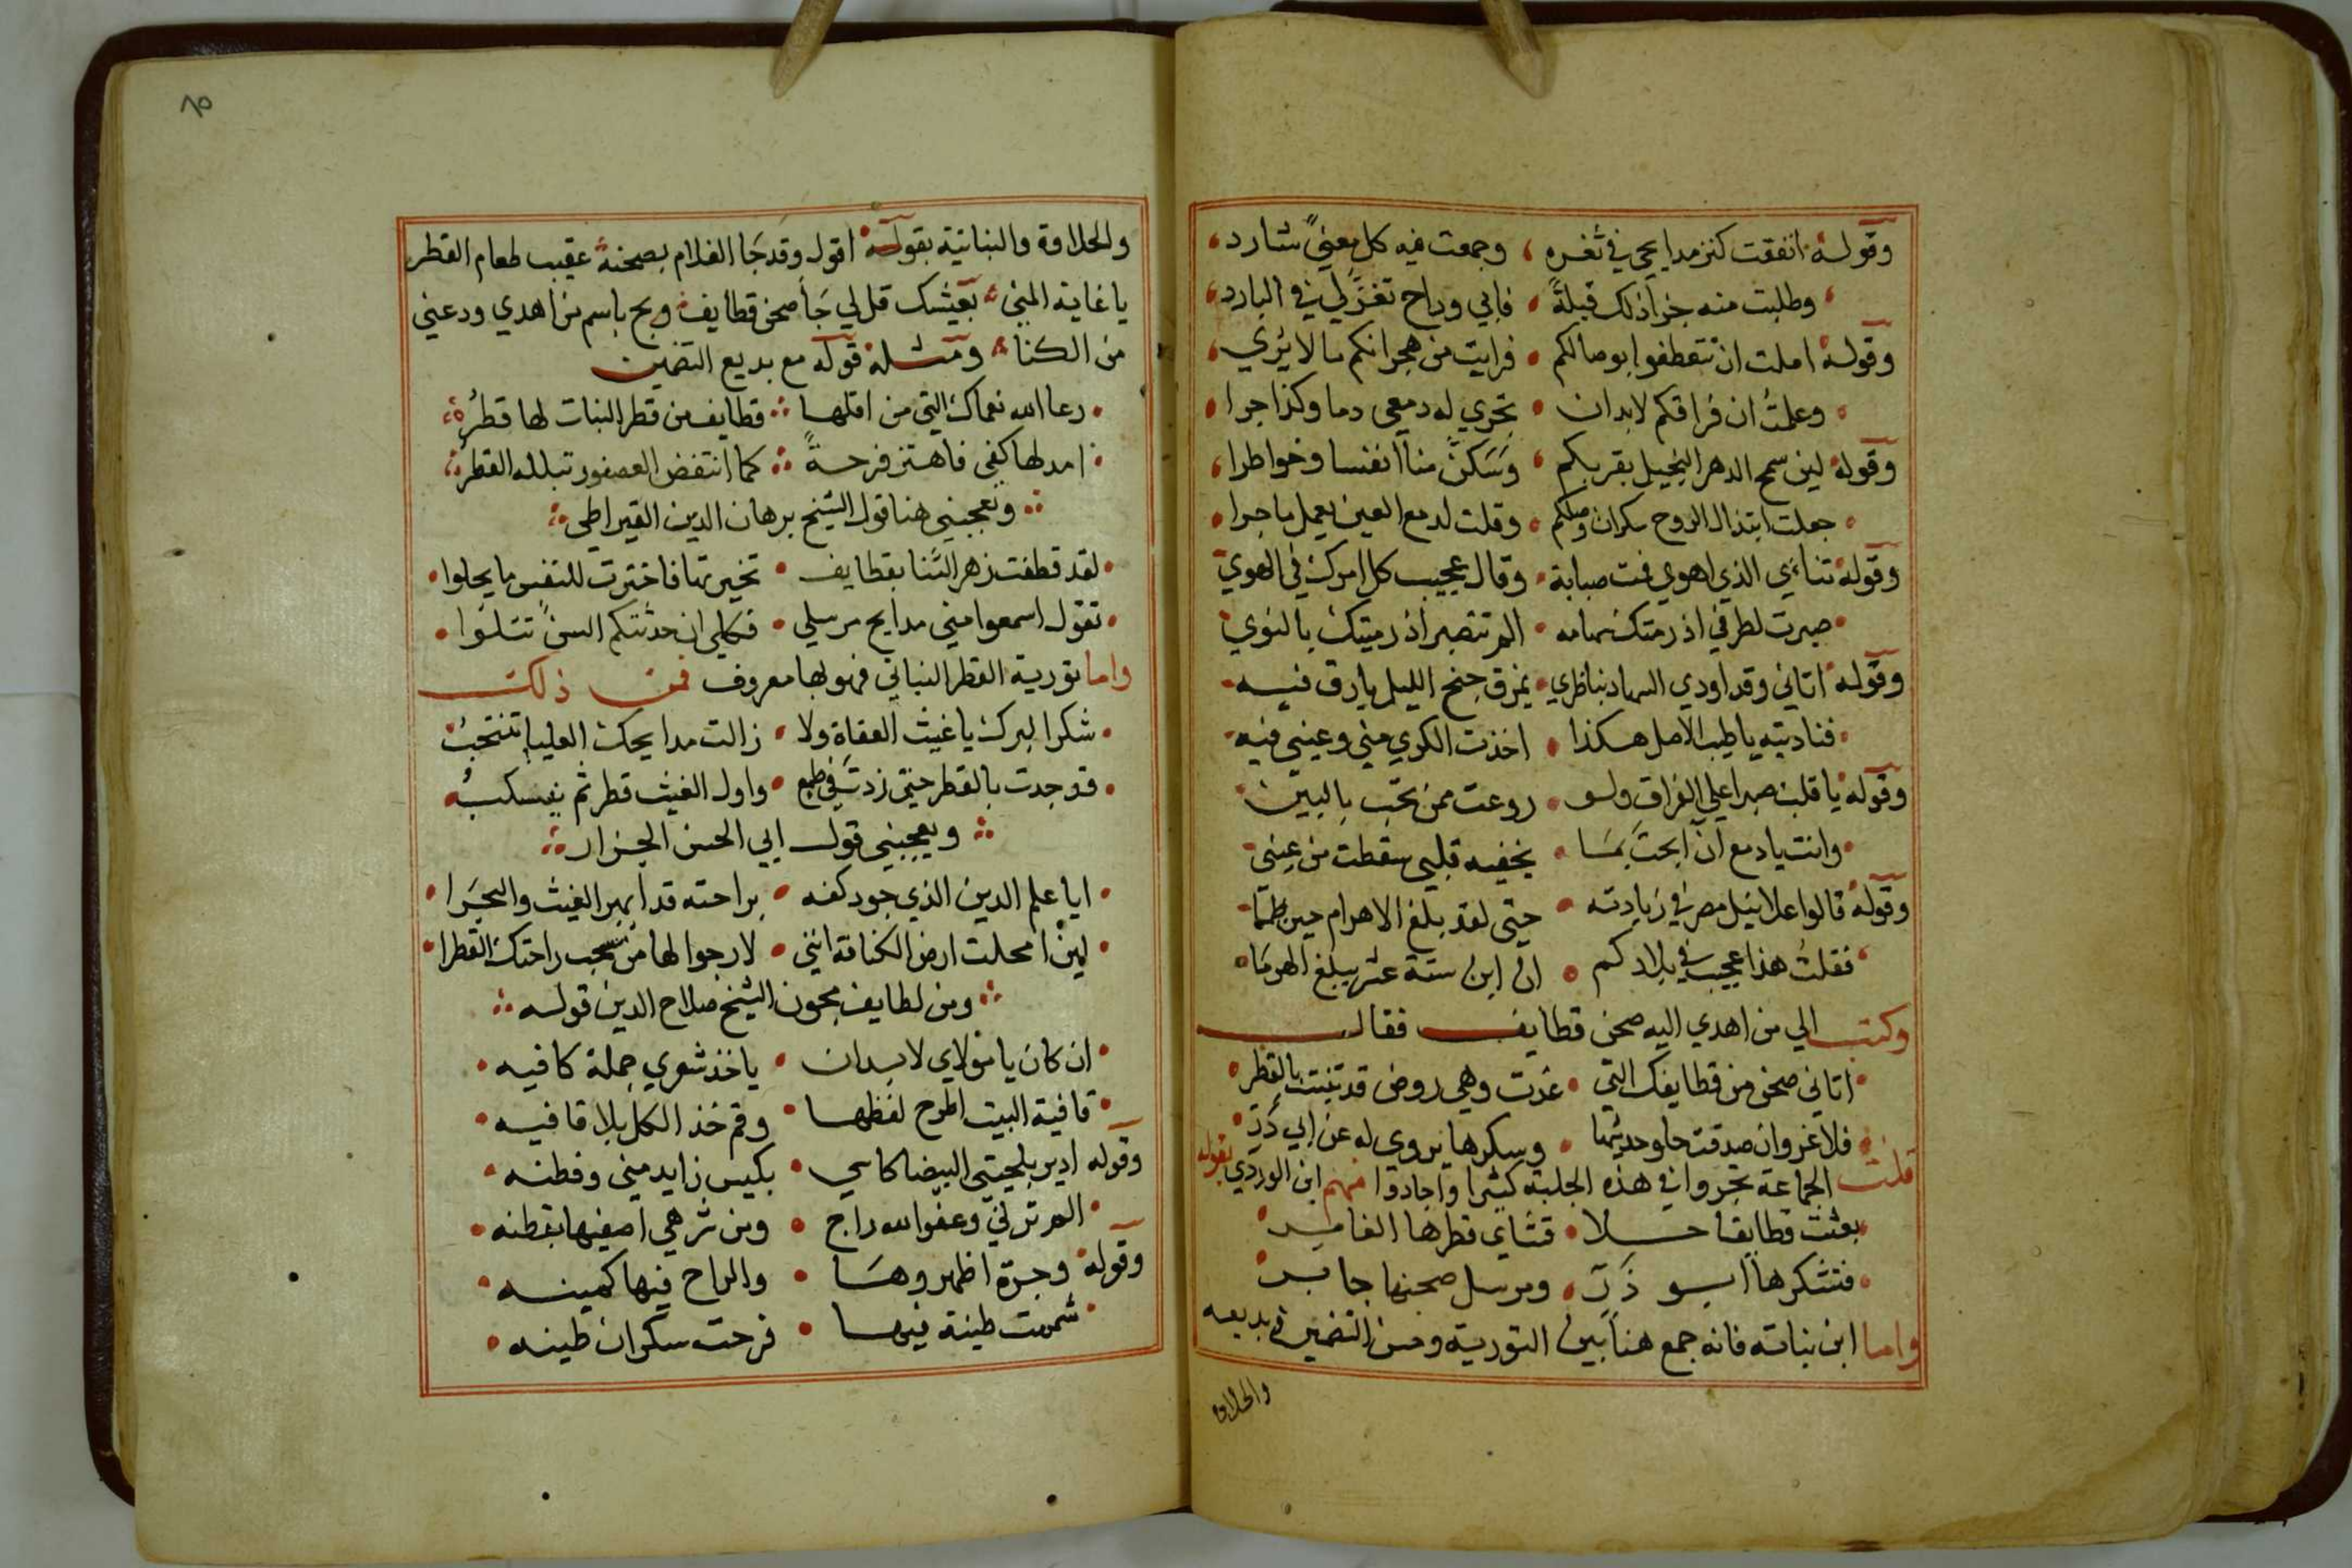 وقوله انفقت كنز مدايحي في ثغره وجمعت فيه كل معنيً شارد
وطلبت منه جزا ذلك قبلةً فابي وراح تغزلي في البارد
وقوله املت ان تتعطفوا بوصالكم فرايت من هجرانكم ما لا يري
وعلمت ان فراقكم لابد ان تجري له دمعي دما وكذا جرا
وقوله لين سمح الدهر البخيل بقربكم وسكن منا انفسا وخواطرا
جعلت ابتذال الروح شكران وصلكم وقلت لدمع العين يعمل ما جرا
وقوله تناءي الذي اهوي فمت صبابة وقال عجيب كل امرك في الهوي
صبرت لطرفي اذ رمتك سهامه الم تصبر اذ رميتك بالنوي
وقوله اتاني وقد اودي السهاد بناظري يمزق جنح الليل بارق فيه
فناديته يا طيب الاصل هكذا اخذت الكري مني وعيني فيه
وقوله يا قلب صبرا علي الفراق ولو روعت ممن تحب بالبين
وانت يا دمع ان ابحت بما يخفيه قلبي سقطت من عيني
وقوله قالوا علا نيل مصر في زيادته حتي لقد بلغ الاهرام حين طما
فقلت هذا عجيب في بلادكم ان ابن ستة عشر يبلغ الهرما
وكتب الي من اهدي اليه صحن قطايف فقال
اتاني صحن من قطايفك التي غدت وهي روض قد تنبت بالقطر
فلا غرو ان صدقت حلو حديثها وسكرها يروي له عن ابي ذر
قلت الجماعة تجروا في هذه الجلبة كثيرا واجادوا فمنهم ابن الوردي بقوله
بعثت قطايفا حلا قتشاي قطرها الغامر
فتشكرها ابو ذر ومرسل صحنها جابر
واما ابن نباته فانه جمع هنا بين التورية وحسن التضمين في بديعه
والحلاوة
٨٥
والحلاوة والنباتية بقوله اقول وقد جا الغلام بصحنه عقيب طعام الفطر
يا غاية المني بعيشك قل لي جا صحن قطايف وبح باسم من اهدي ودعني
من الكنا ومثله قوله مع بديع التضمين
رعا الله نعماك التي من اقلها قطايف من قطر النبات لها قطر
امد لها كفي فاهتز فرحةً كما انتفض العصفور تبلله القطر
ويعجبني هنا قول الشيخ برهان الدين القيراطي
لقد قطفت زهر الثنا بقطايف تخيرتها فاخترت للنفس ما يحلوا
تقول اسمعوا مني مدايح مرسلي فكلي ان حدثتكم السن تتلوا
واما تورية القطر النباتي فهو بها معروف فمن ذلك
شكرا لبرك يا غيث العفاة ولا زالت مدايحك العليا تنتخب
قد جدت بالقطر حتي زدت في طمع واول الغيث قطر ثم ينسكب
ويعجبني قول ابي الحسن الجزار
ايا علم الدين الذي جود كفه براحته قد ابهر الغيث والبحرا
لين امحلت ارض الكنافة انني لارجوا لها من سحب راحتك القطرا
ومن لطايف مجون الشيخ صلاح الدين قوله
ان كان يا مولاي لابد ان ياخذ شعري جملة كافيه
قافية البيت اطرح لفظها وقم خذ الكل بلا قافيه
وقوله ادير بلحيتي البيضا كاسي بكيس زايد مني وفطنه
الم ترني وعفو الله راج ومن شرهي اصفيها بقطنه
وقوله وجرة اظهروها والراح فيها كمينه
شممت طينة فيها فرحت سكران طينه